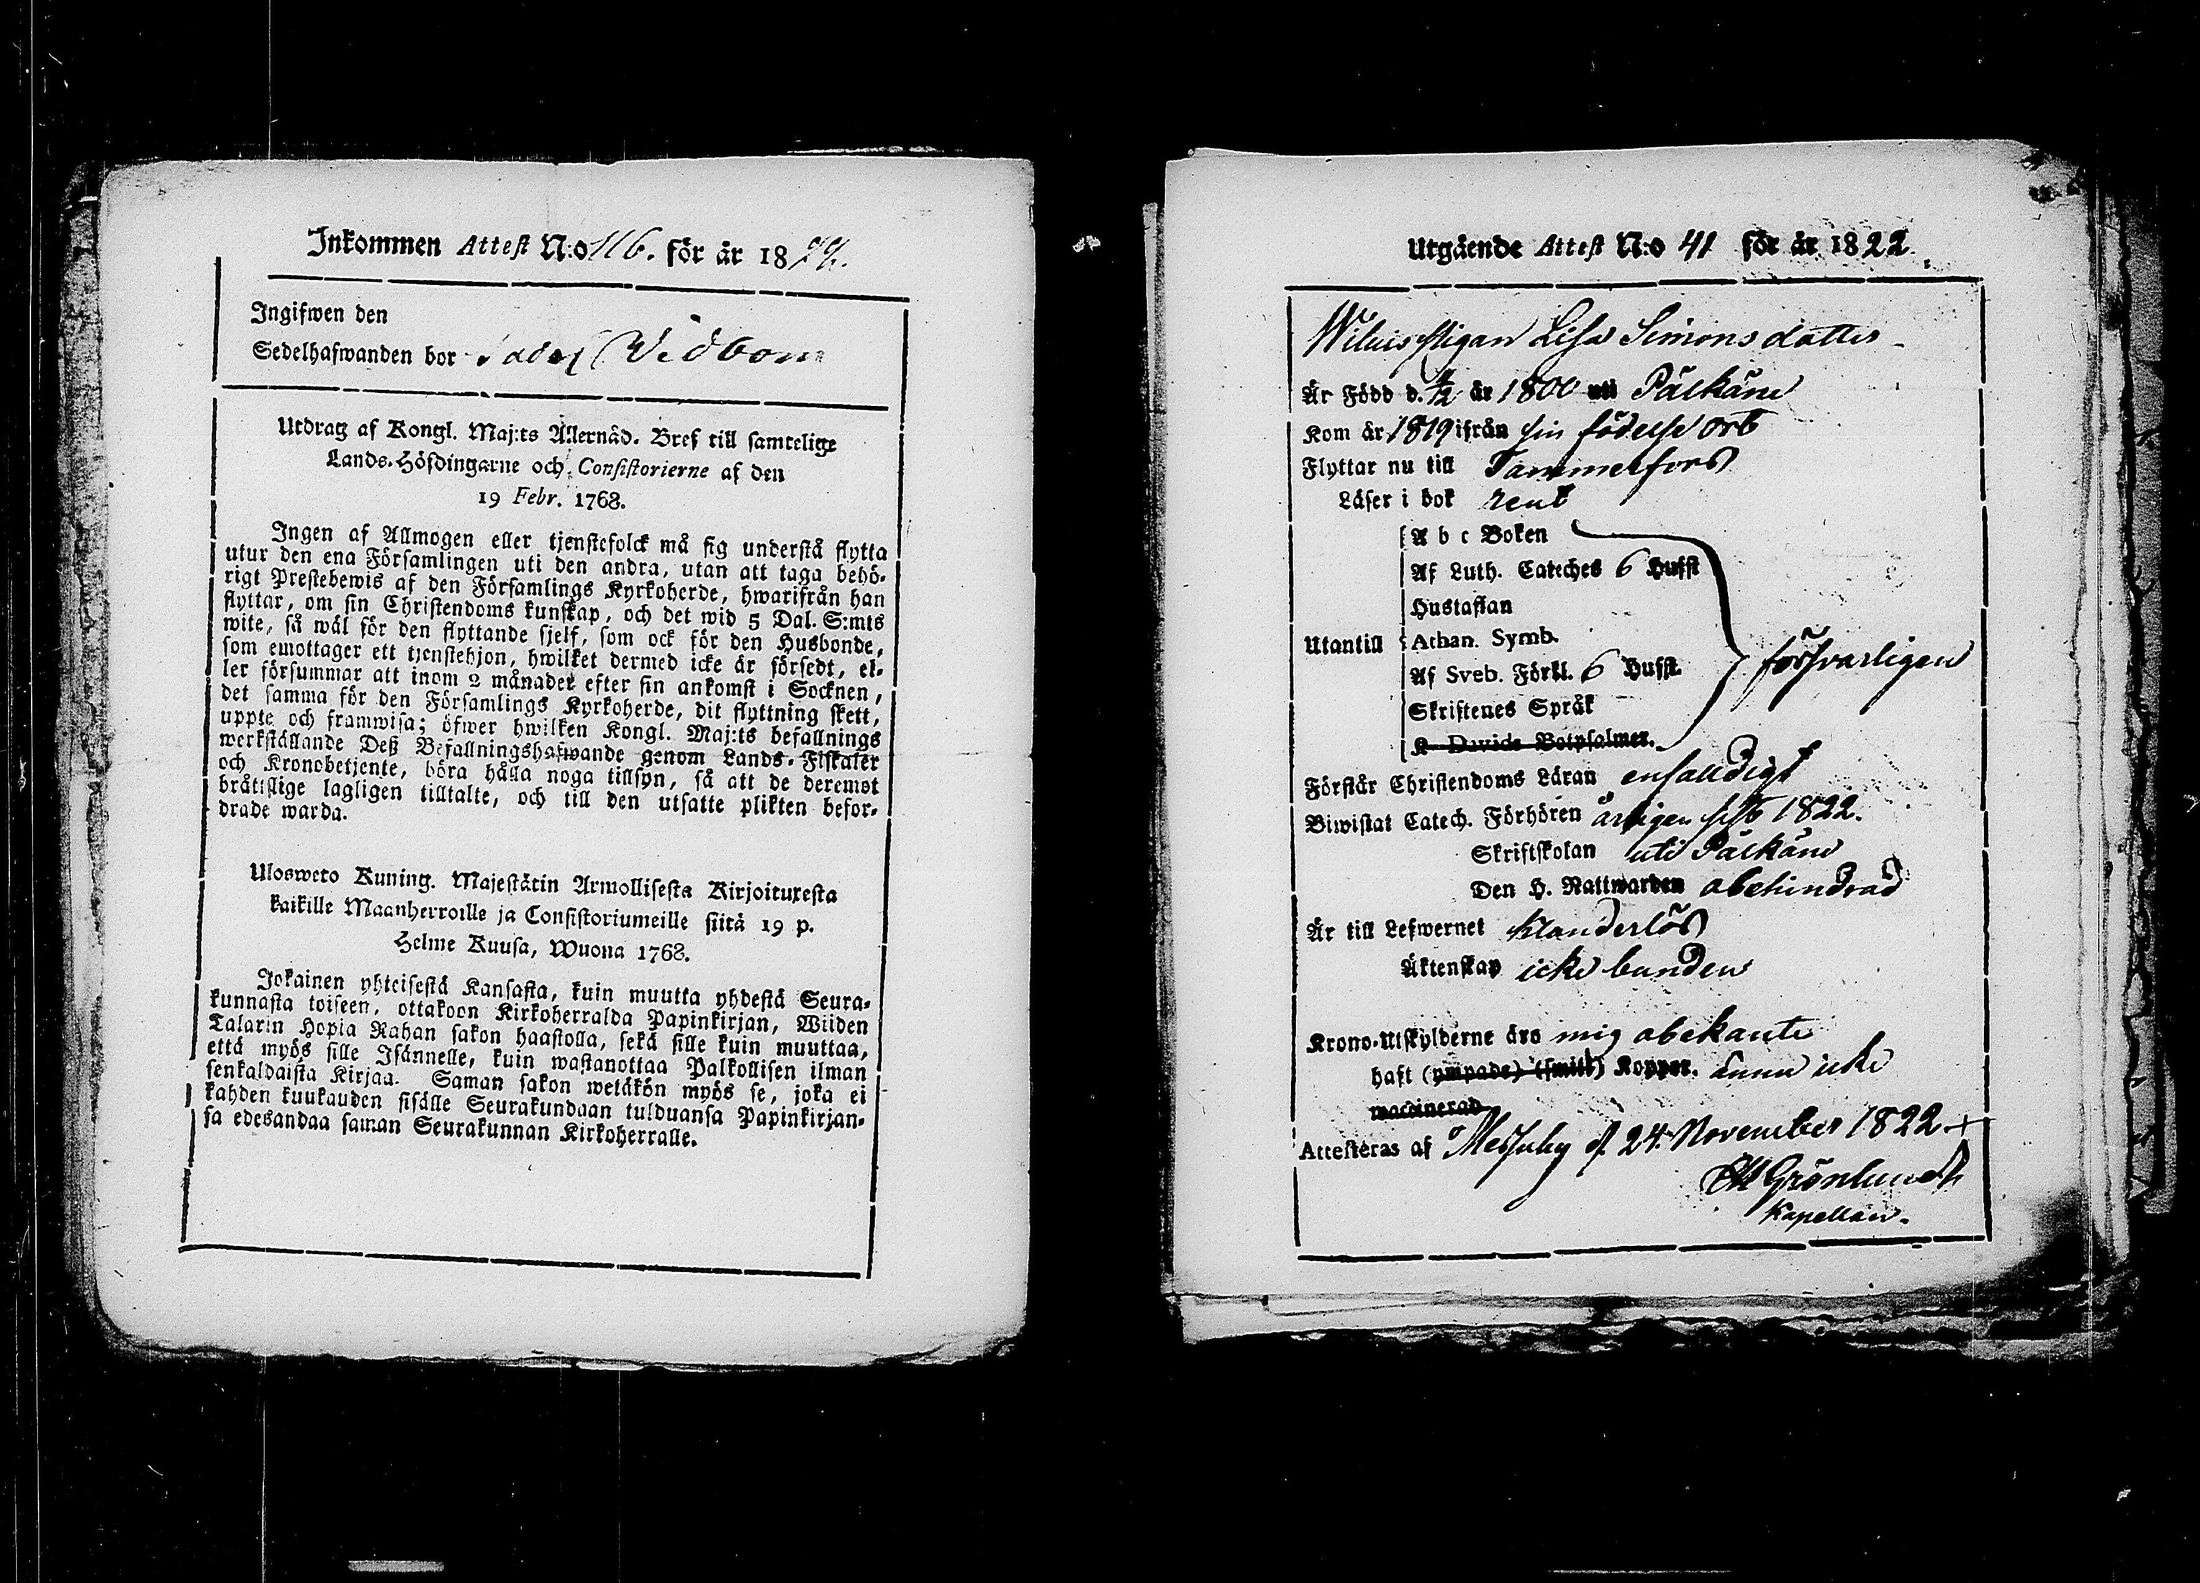 Inkommen Attest N:o 116. för år 1822.
Ingifwen den
Sedelhafwanden bor Widbom
Utdrag af Kongl. Maj:ts Allernåd. Bref till samtelige
Lands-Höfdingarne och Consistorierne af den
19 Febr. 1768.
Ingen af Allmogen eller tjenstefolck må sig understå flytta
utur den ena Församlingen uti den andra, utan att taga behö-
rigt Prestebewis af den Församlings Kyrkoherde, hwarifrån han
flyttar, om sin Christendoms kunskap, och det wid 5 Dal. S:mts
wite, så wäl för den flyttande sjelf, som ock för den Husbonde,
som emottager ett tjenstehjon, hwilket dermed icke är försedt, el-
ler försummar att inom 2 månader efter sin ankomst i Socknen,
det samma för den Församlings Kyrkoherde, dit flyttning skett,
uppte och framwisa; öfwer hwilken Kongl. Maj:ts befallnings
werkställande Deß Befallningshafwande genom Lands-Fiskaler
och Kronobetjente, böra hålla noga tillsyn, så att de deremot
bråttslige lagligen tilltalte, och till den utsatte plikten befor-
drade warda.
Ulosweto Kuning. Majestätin Armollisesta Kirjoituxesta
kaikille Maanherroille ja Consistoriumeille siitä 19 p.
Helme Kuusa, Wuona 1768.
Jokainen yhteisestä Kansasta, kuin muutta yhdestä Seura-
kunnasta toiseen, ottakoon Kirkoherralda Papinkirjan, Wiiden
Talarin Hopia Rahan sakon haastolla, sekä sille kuin muuttaa,
että myös sille Isännelle, kuin wastanottaa Palkollisen ilman
senkaldaista Kirjaa. Saman sakon wetäkön myös se, joka ei
kahden kuukauden sisälle Seurakundaan tulduansa Papinkirjan-
sa edesandaa saman Seurakunnan Kirkoherralle.
Utgående Attest N:o 41 för år 1822.
Lisa Simonsdotter
Är Född d. 4/12 år 1800 uti Pälkäne
Kom år 1819 ifrån sin födelse ort
Flyttar nu till Tammerfors
Läser i bok rent
A b c Boken
Af Luth. Cateches 6 Hufst
Hustaflan
Utantill Athan. Symb. försvarligen
Af Sveb. Förkl. 6 Hufst.
Skriftenes Språk
K. Davids Botpsalmer.
Förstår Christendoms Läran enfalldigt
Biwistat Catech. Förhören årligen sist 1822.
Skriftskolan uti Pälkäne
Den H. Nattwarden obehindrad
Är till Lefwernet klanderlös
Äktenskap icke bunden
Krono-Utskylderne äro mig obekante
haft (ympade) (smitt) Koppor. ännu icke
waccinerad
Attesteras af Messuby d. 24. November 1822
Grönlund
Kapellan.